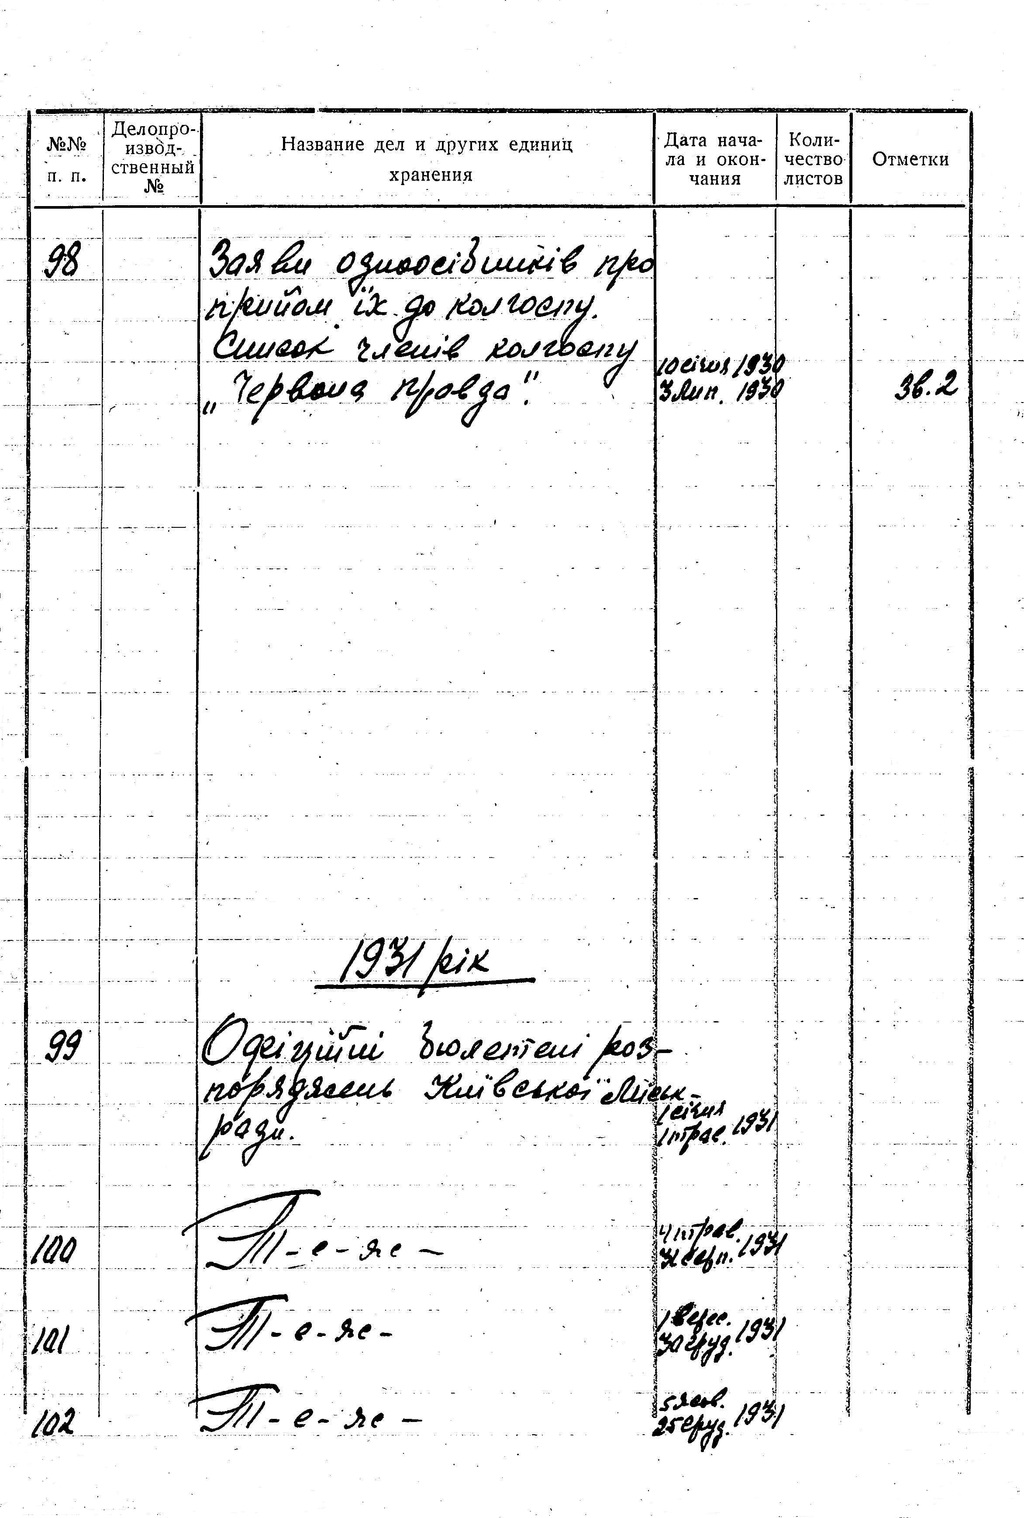 №№
п. п.
Делопро-
извод-
ственный
№
Название дел и других единиц
хранения
Дата нача-
ла и окон-
чания
Коли-
чество
листов
Отметки
98
Заяви одноосібників про
прийом їх до колгоспу.
Список членів колгоспу
„Червона правда".
10 січня 1930
3 лип. 1930
Зв. 2
1931 рік
99
Офіційні бюлетені роз-
поряджень Київської Міськ-
ради.
1 січня
1 трав. 1931
100
Т-е-ж-
4 трав.
31 серп. 1931
101
Т-е-ж-
1 верес.
30 груд. 1931
102
Т-е-ж-
5 жов.
25 груд. 1931